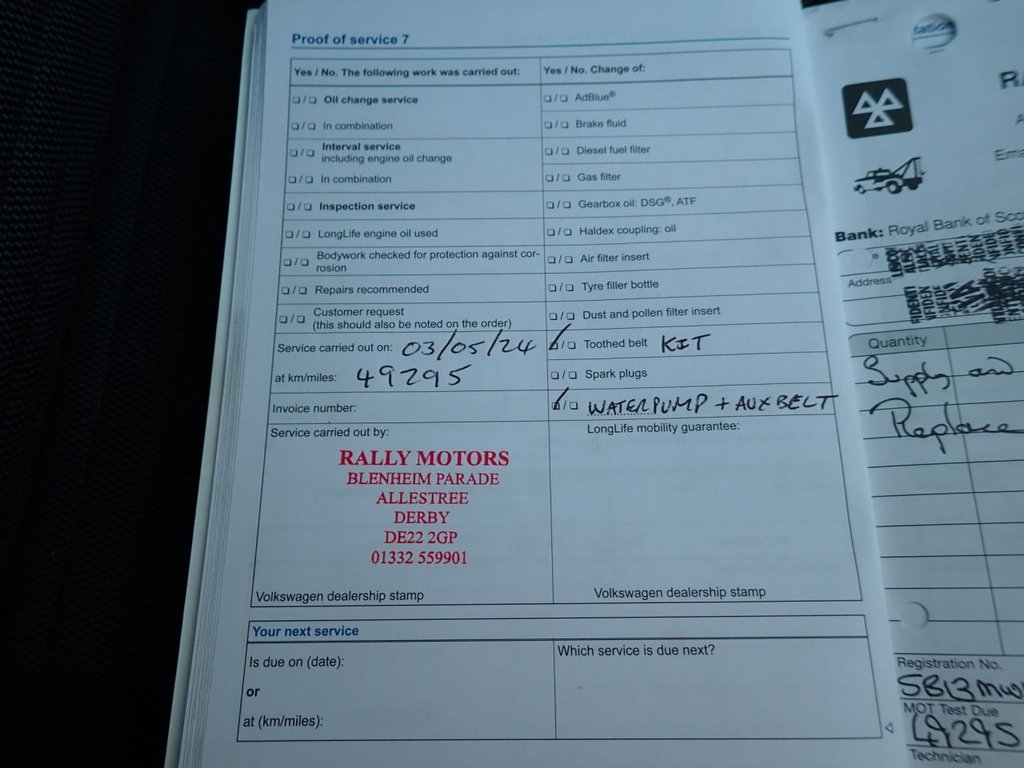 Proof of service 7
Yes / No. The following work was carried out:
Yes / No. Change of:
❑ / ❑ Oil change service
❑ / ❑ AdBlue®
❑ / ❑ In combination
❑ / ❑ Brake fluid
❑ / ❑ Interval service
including engine oil change
❑ / ❑ Diesel fuel filter
❑ / ❑ In combination
❑ / ❑ Gas filter
❑ / ❑ Inspection service
❑ / ❑ Gearbox oil: DSG®, ATF
❑ / ❑ LongLife engine oil used
❑ / ❑ Haldex coupling: oil
❑ / ❑ Bodywork checked for protection against cor-
rosion
❑ / ❑ Air filter insert
❑ / ❑ Repairs recommended
❑ / ❑ Tyre filler bottle
❑ / ❑ Customer request
(this should also be noted on the order)
❑ / ❑ Dust and pollen filter insert
Service carried out on: 03/05/24
❑ / ❑ Toothed belt KIT
at km/miles: 49295
❑ / ❑ Spark plugs
Invoice number:
❑ / ❑ WATERPUMP + AUXBELT
Service carried out by:
LongLife mobility guarantee:
RALLY MOTORS
BLENHEIM PARADE
ALLESTREE
DERBY
DE22 2GP
01332 559901
Volkswagen dealership stamp
Volkswagen dealership stamp
Your next service
Is due on (date):
Which service is due next?
or
at (km/miles):
Bank: Royal Bank of Sco
Address
Quantity
Supply and
Replace
Registration No.
MOT Test Due
49295
Technician